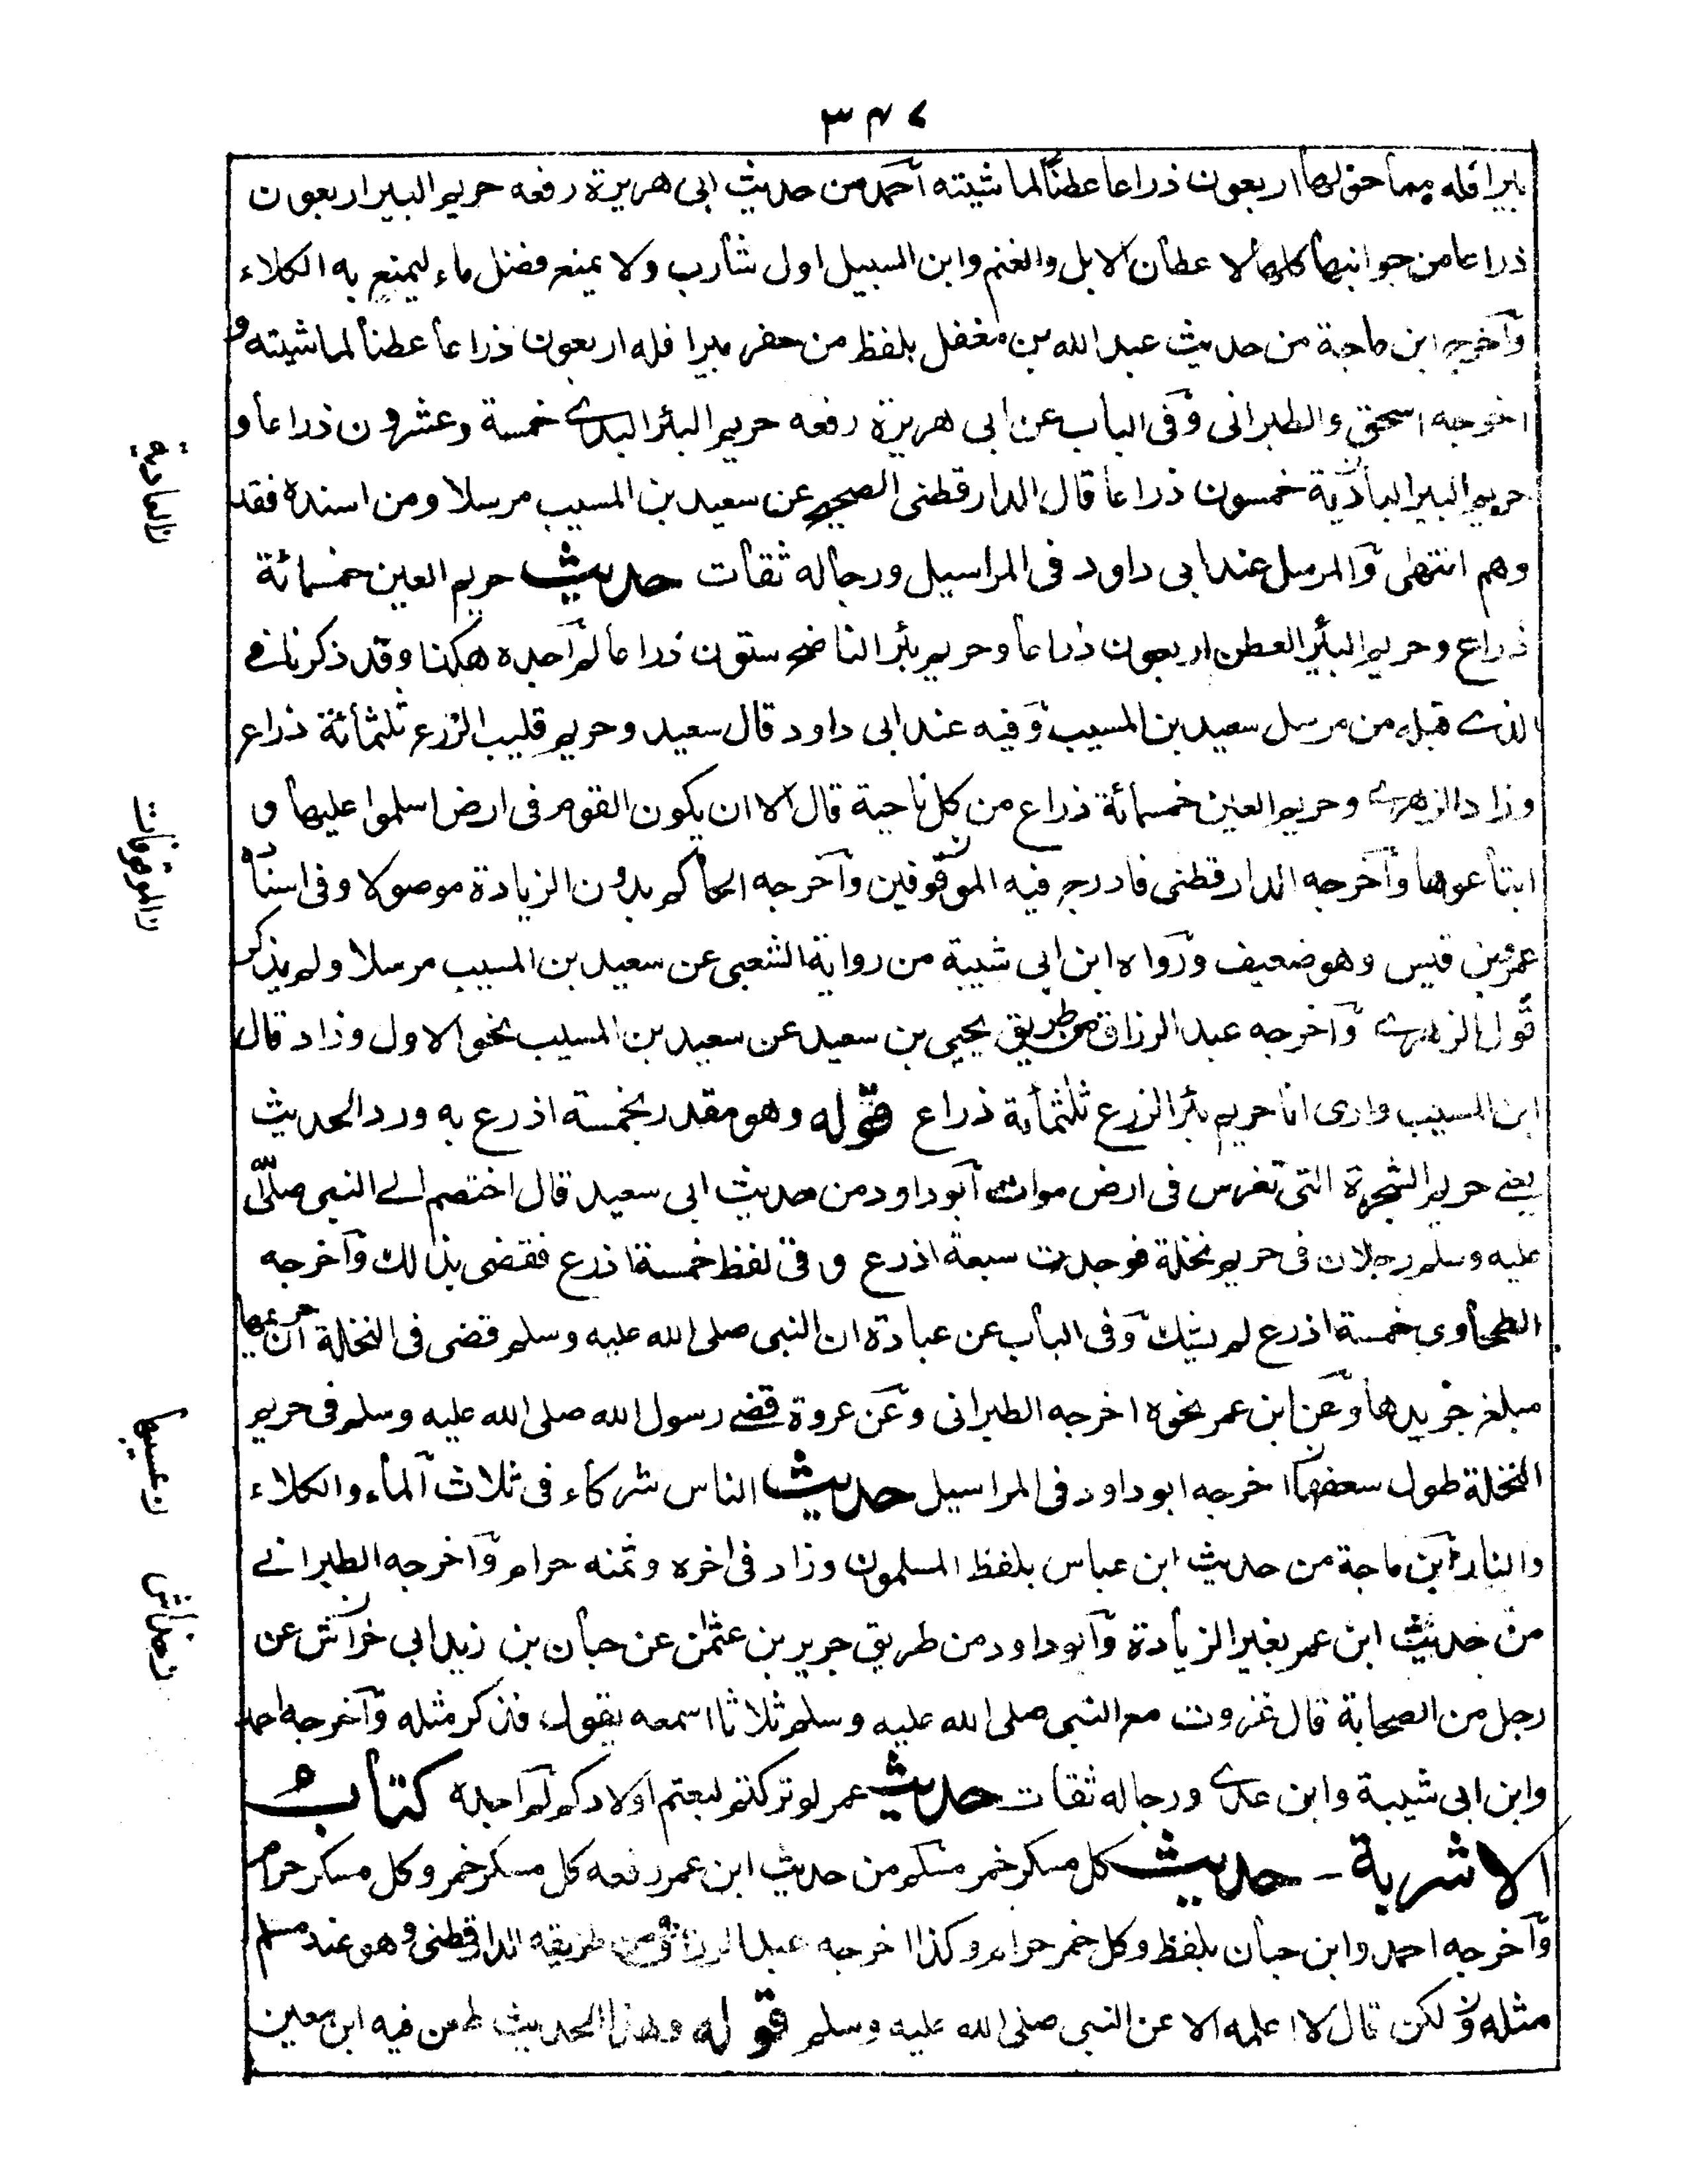 ۳۴۷
بيرا فله مما حق لها اربعون ذراعا عطنا لما شيته احمد من حديث ابى هريرة رفعه حريم البير اربعون
ذراعا من جوانبها كلها لا عطان الابل والغنم وابن السبيل اول شارب ولا يمنع فضل ماء ليمنع به الكلاء
وآخرجه ابن ماجة من حديث عبد الله بن مغفل بلفظ من حفر بيرا فله اربعون ذراعا عطنا لما شيته و
اخرجه اسحق والطبرانى وفى الباب عن ابى هريرة رفعه حريم البئر البدے خمسة وعشرون ذراعا و
حريم البير البادية خمسون ذراعا قال الدارقطنى الصحيح عن سعيد بن المسيب مرسلا ومن اسنده فقد
وهم انتهى والمرسل عند ابى داود فى المراسيل ورجاله ثقات حديث حريم العين خمسمائة
ذراع وحريم البئر العطن اربعون ذراعا وحريم بئر الناضح ستون ذراعا لم آجده هكذا وقد ذكرنا فے
الذے قبله من مرسل سعيد بن المسيب وفيه عند ابى داود قال سعيد وحريم قليب الزرع ثلثمائة ذراع
وزاد الزهرے وحريم العين خمسمائة ذراع من كل ناحية قال الا ان يكون القوم فى ارض اسلموا عليها و
ابتاعوها وآخرجه الدارقطنى فادرج فيه الموقوفين وآخرجه الحاكم بدون الزيادة موصولا وفى اسناده
عمر بن قيس وهو ضعيف ورواه ابن ابى شيبة من رواية الشعبى عن سعيد بن المسيب مرسلا ولم يذكر
قول الزهرے وآخرجه عبد الرزاق من طريق يحيى بن سعيد عن سعيد بن المسيب نحو الاول وزاد قال
ابن المسيب وارى انا حريم بئر الزرع ثلثمائة ذراع قوله وهو مقدر بخمسة اذرع به ورد الحديث
يعنے حريم الشجرة التى تغرس فى ارض موات ابوداود من حديث ابى سعيد قال اختصم الے النبى صلى الله
عليه وسلم رجلان فى حريم نخلة فوجدت سبعة اذرع و فى لفظ خمسة اذرع فقضى بذلك وآخرجه
الطحاوى خمسة اذرع لم يشك وفى الباب عن عبادة ان النبى صلى الله عليه وسلم قضى فى النخلة ان حريمها
مبلغ جريدها وعن ابن عمر نحوه اخرجه الطبرانى وعن عروة قضے رسول الله صلى الله عليه وسلم فى حريم
النخلة طول سعفها اخرجه ابو داود فى المراسيل حديث الناس شركاء فى ثلاث الماء والكلاء
والنار ابن ماجة من حديث ابن عباس بلفظ المسلمون وزاد فى اخره وثمنه حرام وآخرجه الطبرانے
من حديث ابن عمر بغير الزيادة وآبوداود من طريق جرير بن عثمٰن عن حبان بن زيد ابى خراش عن
رجل من الصحابة قال غزوت مع النبى صلى الله عليه وسلم ثلاثا اسمعه يقول فذكر مثله وآخرجه احمد
وابن ابى شيبة وابن عدے ورجاله ثقات حديث عمر لو تركتم لبعتم اولادكم لم اجده كتاب
الاشربة - حديث كل مسكر خمر مسلم من حديث ابن عمر رفعه كل مسكر خمر وكل مسكر حرام
وآخرجه احمد وابن حبان بلفظ وكل خمر حرام وكذا اخرجه عبد الرزاق ومن طريقه الدارقطنى وهو عند مسلم
مثله ولكن قال لا اعلمه الا عن النبى صلى الله عليه وسلم قوله وهذا الحديث طعن فيه ابن معين
ن العادية
ن المرفوعات
ن عسيبها
ن خداش